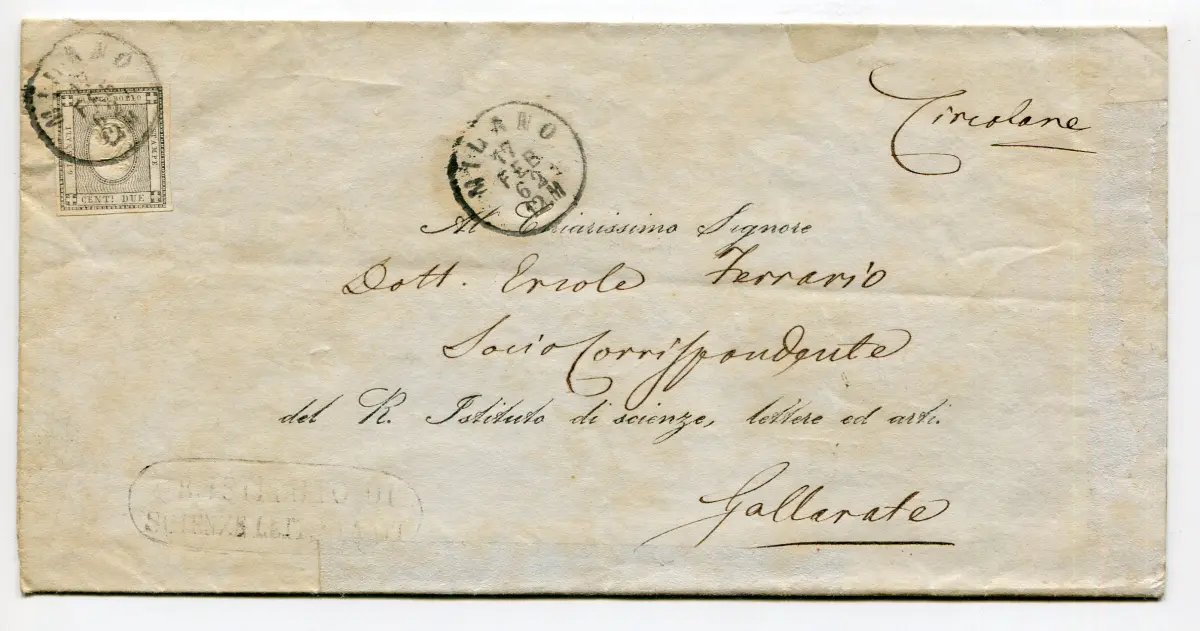 MILANO
17
FEB
62
12 M
STAMPE
CENTI DUE
MILANO
17
FEB
62
12 M
Circolare
Al Chiarissimo Signore
Dott. Ercole Ferrario
Socio Corrispondente
del R. Istituto di scienze, lettere ed arti.
Gallarate
SCIENZE